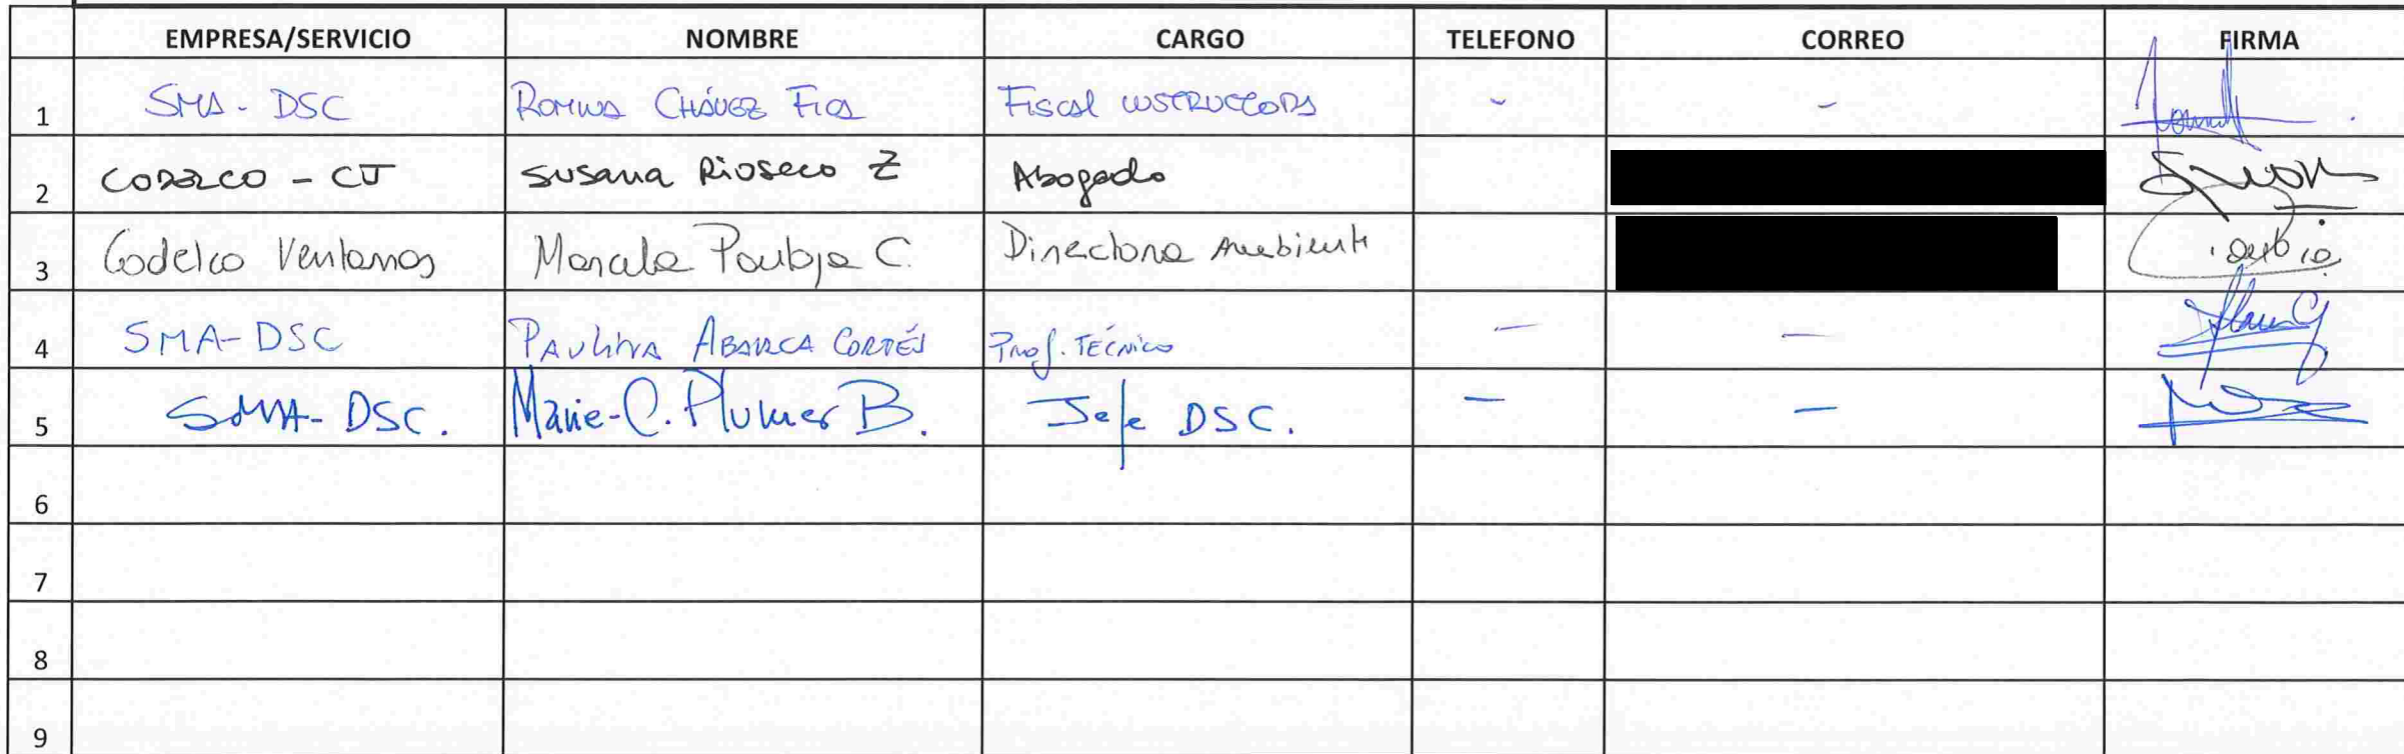 EMPRESA/SERVICIO NOMBRE CARGO TELEFONO CORREO FIRMA
1 SMA - DSC ROMINA CHÁVEZ FICA FISCAL INSTRUCTORA - -
2 CODELCO - CT Susana Rioseco Z Abogado
3 Codelco Ventanas Marcela Pantoja C. Directora Ambiente
4 SMA-DSC PAULINA ABARCA CORTÉS Prof. TÉCNICO - -
5 SMA-DSC. Marie-C. Plumer B. Jefe DSC. - -
6
7
8
9